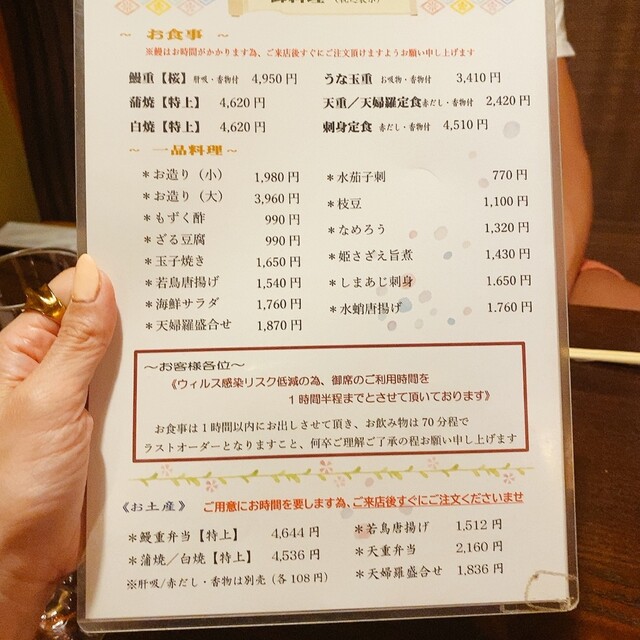 ～ お食事 ～
※鰻はお時間がかかります為、ご来店後すぐにご注文頂けますようお願い申し上げます
鰻重【桜】 肝吸・香物付 4,950円
うな玉重 お吸物・香物付 3,410円
蒲焼【特上】 4,620円
天重／天婦羅定食 赤だし・香物付 2,420円
白焼【特上】 4,620円
刺身定食 赤だし・香物付 4,510円
～ 一品料理 ～
＊お造り（小） 1,980円
＊お造り（大） 3,960円
＊もずく酢 990円
＊ざる豆腐 990円
＊玉子焼き 1,650円
＊若鳥唐揚げ 1,540円
＊海鮮サラダ 1,760円
＊天婦羅盛合せ 1,870円
＊水茄子刺 770円
＊枝豆 1,100円
＊なめろう 1,320円
＊姫さざえ旨煮 1,430円
＊しまあじ刺身 1.650円
＊水蛸唐揚げ 1.760円
～お客様各位～
《ウィルス感染リスク低減の為、御席のご利用時間を
1時間半程までとさせて頂いております》
お食事は１時間以内にお出しさせて頂き、お飲み物は70分程で
ラストオーダーとなりますこと、何卒ご理解ご了承の程お願い申し上げます
《お土産》 ご用意にお時間を要します為、ご来店後すぐにご注文くださいませ
＊鰻重弁当【特上】 4,644円
＊蒲焼／白焼【特上】 4,536円
※肝吸/赤だし・香物は別売（各108円）
＊若鳥唐揚げ 1,512円
＊天重弁当 2,160円
＊天婦羅盛合せ 1,836円